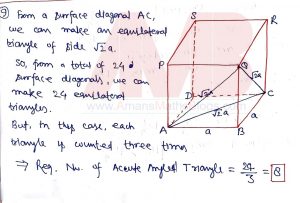 ⑨ From a surface diagonal AC,
we can make an equilateral
triangle of side √2a.
So, from a total of 24
surface diagonals, we can
make 24 equilateral
triangles.
But, in this case, each
triangle is counted three times
⇒ Req. No. of Acute Angled Triangle = 24/3 = 8
S
R
P
Q
√2a
D
√2a
C
√2a
a
A
a
B